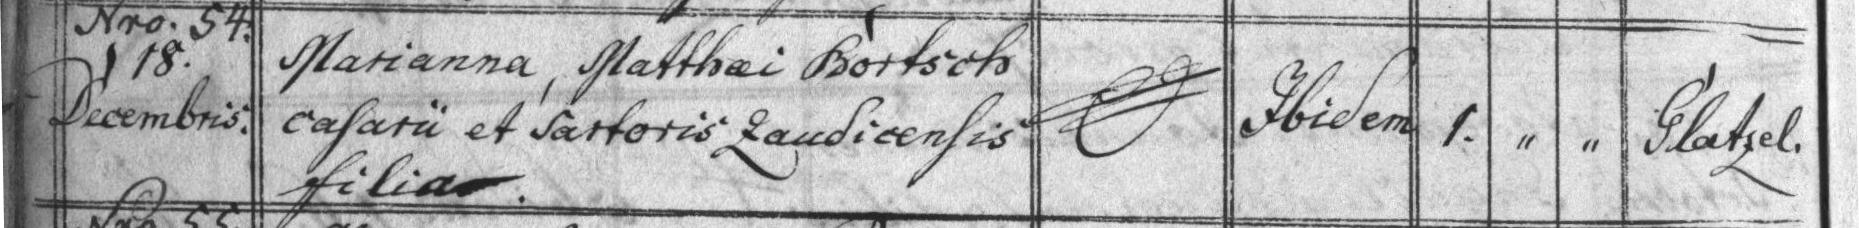 Nro. 54.
18.
Decembris.
Marianna, Matthæi Bortsch
casarii et Sartoris Zaudicensis
filia.
Ibidem
1. „ „
Glatzel.
Nro. 55.